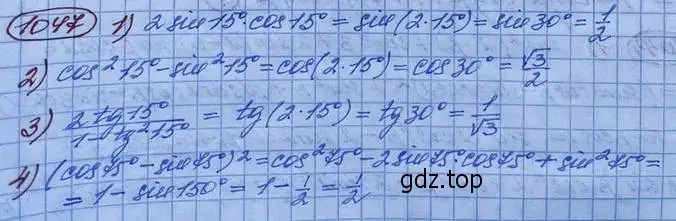 1047 1) 2 sin 15° · cos 15° = sin (2 · 15°) = sin 30° = 1/2
2) cos² 15° - sin² 15° = cos (2 · 15°) = cos 30° = √3/2
3) 2 tg 15° / 1 - tg² 15° = tg (2 · 15°) = tg 30° = 1/√3
4) (cos 75° - sin 75°)² = cos² 75° - 2 sin 75° · cos 75° + sin² 75° =
= 1 - sin 150° = 1 - 1/2 = 1/2
gdz.top